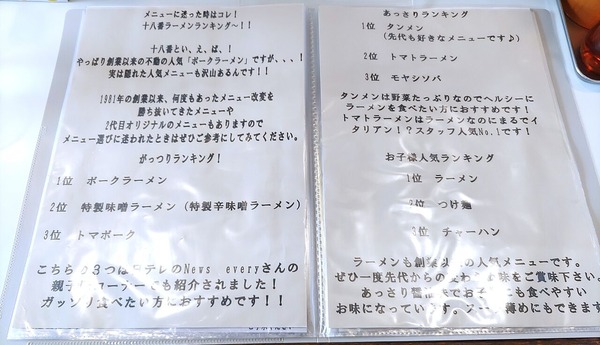 メニューに迷った時はコレ！
十八番ラーメンランキング～！！
十八番といえば、！
やっぱり創業以来の不動の人気「ポークラーメン」ですが、、、！
実は隠れた人気メニューも沢山あるんです！！
1981年の創業以来、何度もあったメニュー改変を
勝ち抜いてきたメニューや
2代目オリジナルのメニューもありますので
メニュー選びに迷われたときはぜひご参考にしてみてください。
がっつりランキング！
1位 ポークラーメン
2位 特製味噌ラーメン（特製辛味噌ラーメン）
3位 トマポーク
こちらの３つは テレのNews everyさんの
親子 コーナー でも紹介されました！
ガッツリ食べたい方におすすめです！！
あっさりランキング
1位 タンメン
（先代も好きなメニューです♪）
2位 トマトラーメン
3位 モヤシソバ
タンメンは野菜たっぷりなのでヘルシーに
ラーメンを食べたい方におすすめです！
トマトラーメンはラーメンなのにまるでイ
タリアン！？スタッフ人気No.1です！
お子様人気ランキング
1位 ラーメン
2位 つけ麺
3位 チャーハン
ラーメンも創業以 の人気メニューです。
ぜひ一度先代からの変わ 味をご賞味下さい。
あっさり醤油味でお子 にも食べやすい
お味になっています。 薄めにもできます